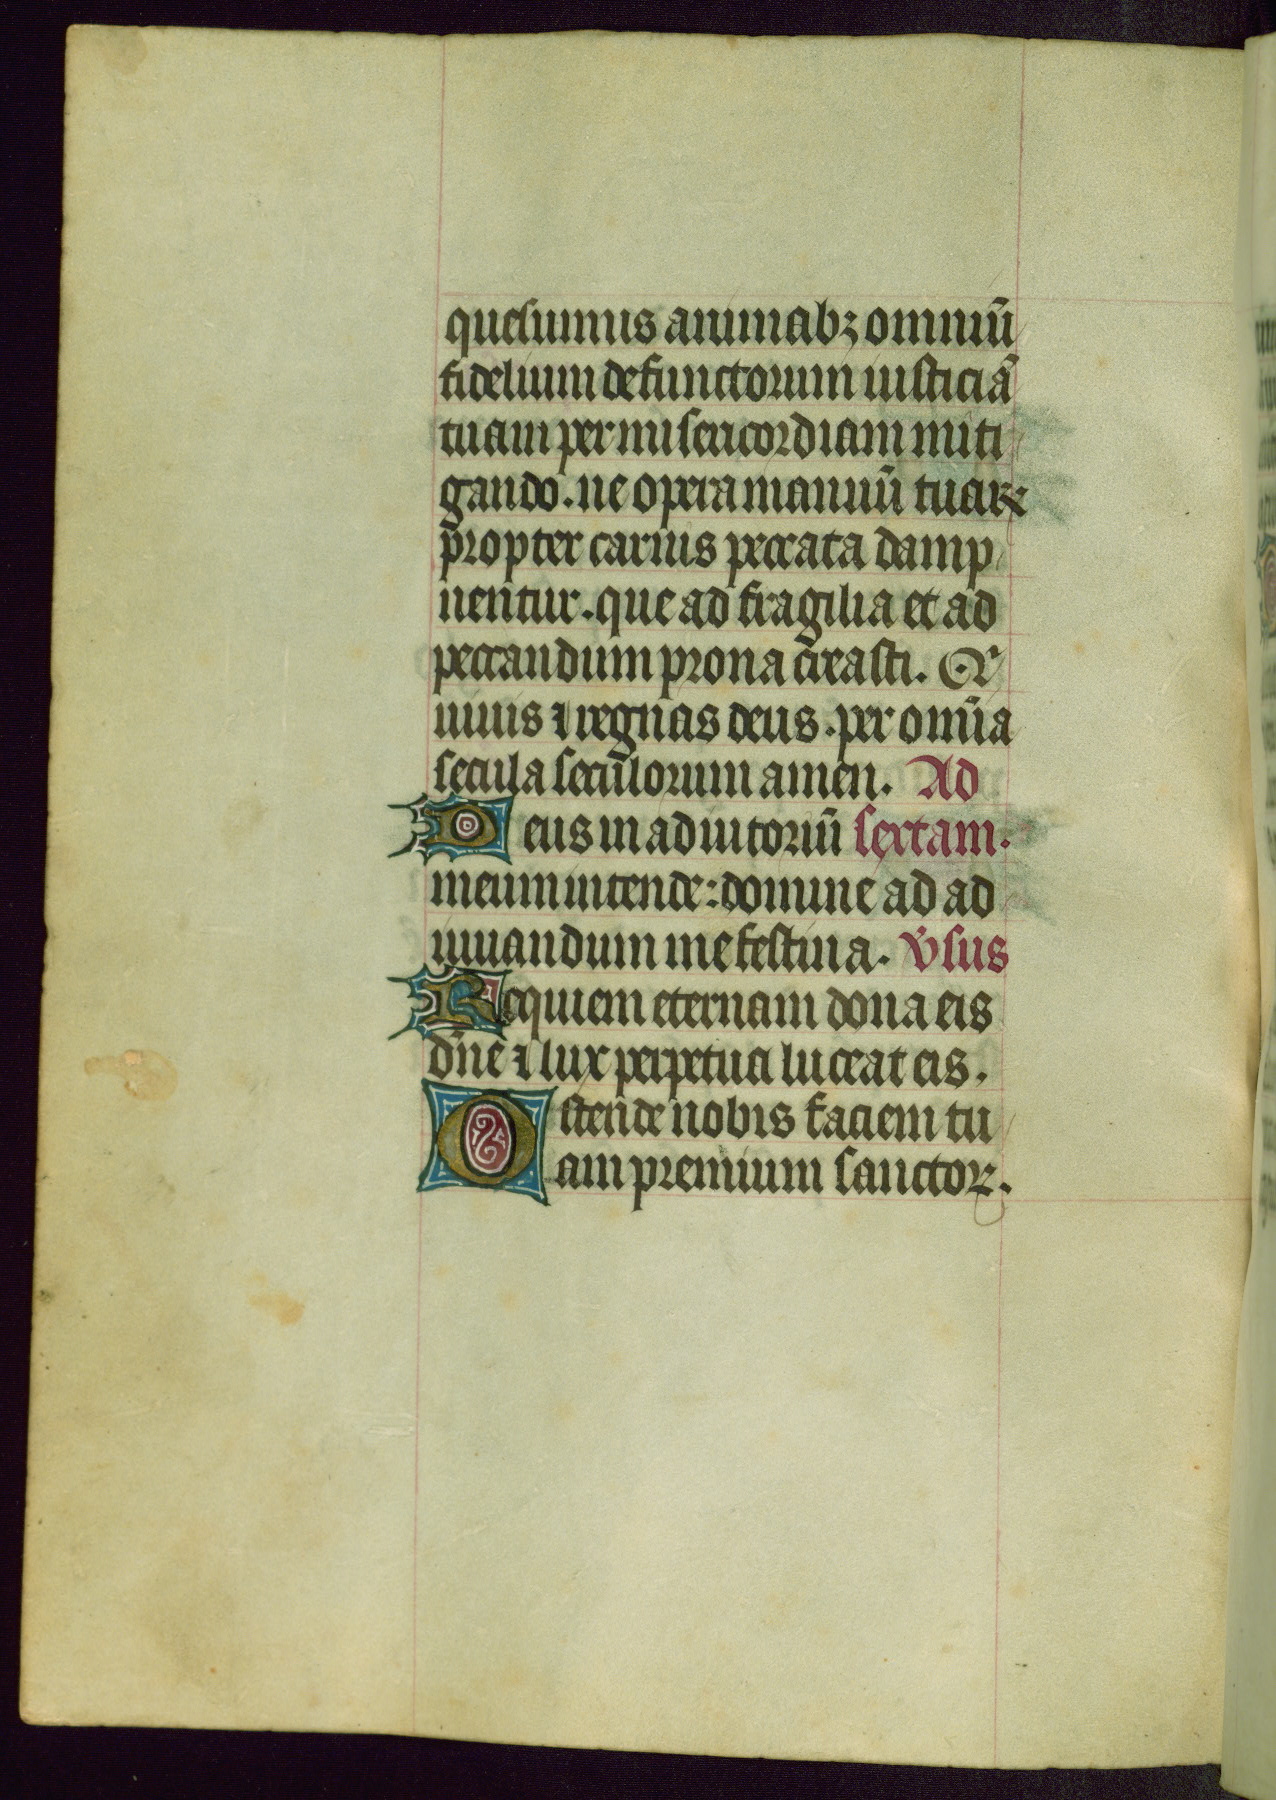 quesumus animabꝫ omniū
fidelium defunctorum iusticiā
tuam per misericordiam miti
gando. ne opera manuū tuaꝝ
propter carnis peccata damp
nentur. que ad fragilia et ad
peccandum prona creasti. Q̄
uiuis ⁊ regnas deus. per om̄ia
secula seculorum amen. Ad
Deus in adiutoriū sextam.
meum intende: domine ad ad
iuuandum me festina. v̄sus
Requiem eternam dona eis
dn̄e ⁊ lux perpetua luceat eis.
Ostende nobis faciem tu
am premium sanctoꝝ.